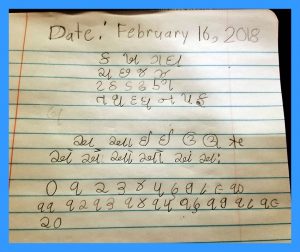 Date: February 16, 2018
ક ખ ગ ઘ
ચ છ જ ઝ
ટ ઠ ડ ઢ ણ
ત થ દ ધ ન પ ફ
અ આ ઇ ઈ ઉ ઊ ઋ
એ ઐ ઓ ઔ અં અઃ
૦ ૧ ૨ ૩ ૪ ૫ ૬ ૭ ૮ ૯ ૧૦
૧૧ ૧૨ ૧૩ ૧૪ ૧૫ ૧૬ ૧૭ ૧૮ ૧૯
૨૦